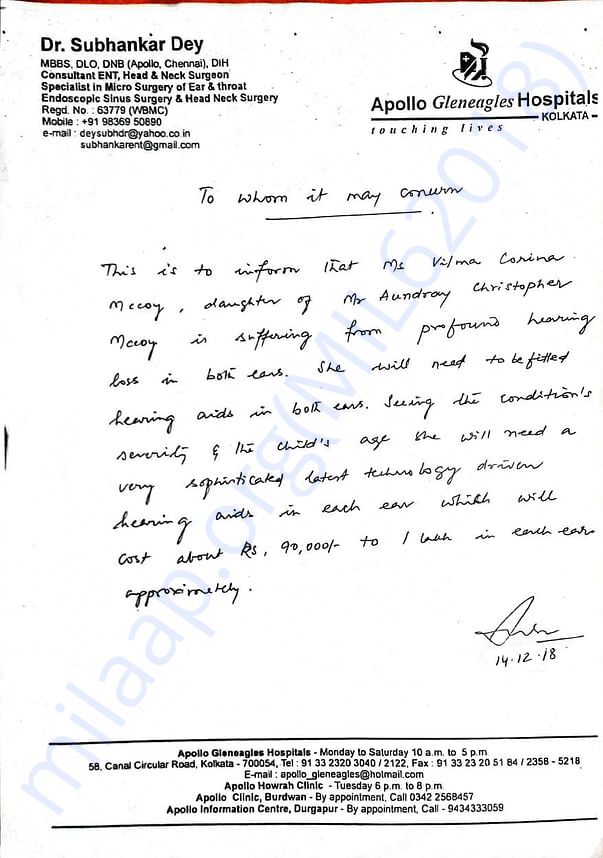 Dr. Subhankar Dey
MBBS, DLO, DNB (Apollo, Chennai), DIH
Consultant ENT, Head & Neck Surgeon
Specialist in Micro Surgery of Ear & throat
Endoscopic Sinus Surgery & Head Neck Surgery
Regd. No. : 63779 (WBMC)
Mobile : +91 98369 50890
e-mail : deysubhdr@yahoo.co.in
subhankarent@gmail.com
Apollo Gleneagles Hospitals
KOLKATA
touching lives
To whom it may concern
This is to inform that Ms Vilma Corina
Mccoy, daughter of Mr Aundray Christopher
Mccoy is suffering from profound hearing
loss in both ears. She will need to be fitted
hearing aids in both ears. Seeing the condition's
severity & the child's age she will need a
very sophisticated latest technology driven
hearing aids in each ear which will
cost about Rs. 90,000/- to 1 lakh in each ear
approximately.
14.12.18
Apollo Gleneagles Hospitals - Monday to Saturday 10 a.m. to 5 p.m.
58, Canal Circular Road, Kolkata - 700054, Tel : 91 33 2320 3040 / 2122, Fax : 91 33 23 20 51 84 / 2358 - 5218
E-mail : apollo_gleneagles@hotmail.com
Apollo Howrah Clinic - Tuesday 6 p.m. to 8 p.m.
Apollo Clinic, Burdwan - By appointment, Call 0342 2568457
Apollo Information Centre, Durgapur - By appointment, Call - 9434333059
milaap.org(MIL62018)